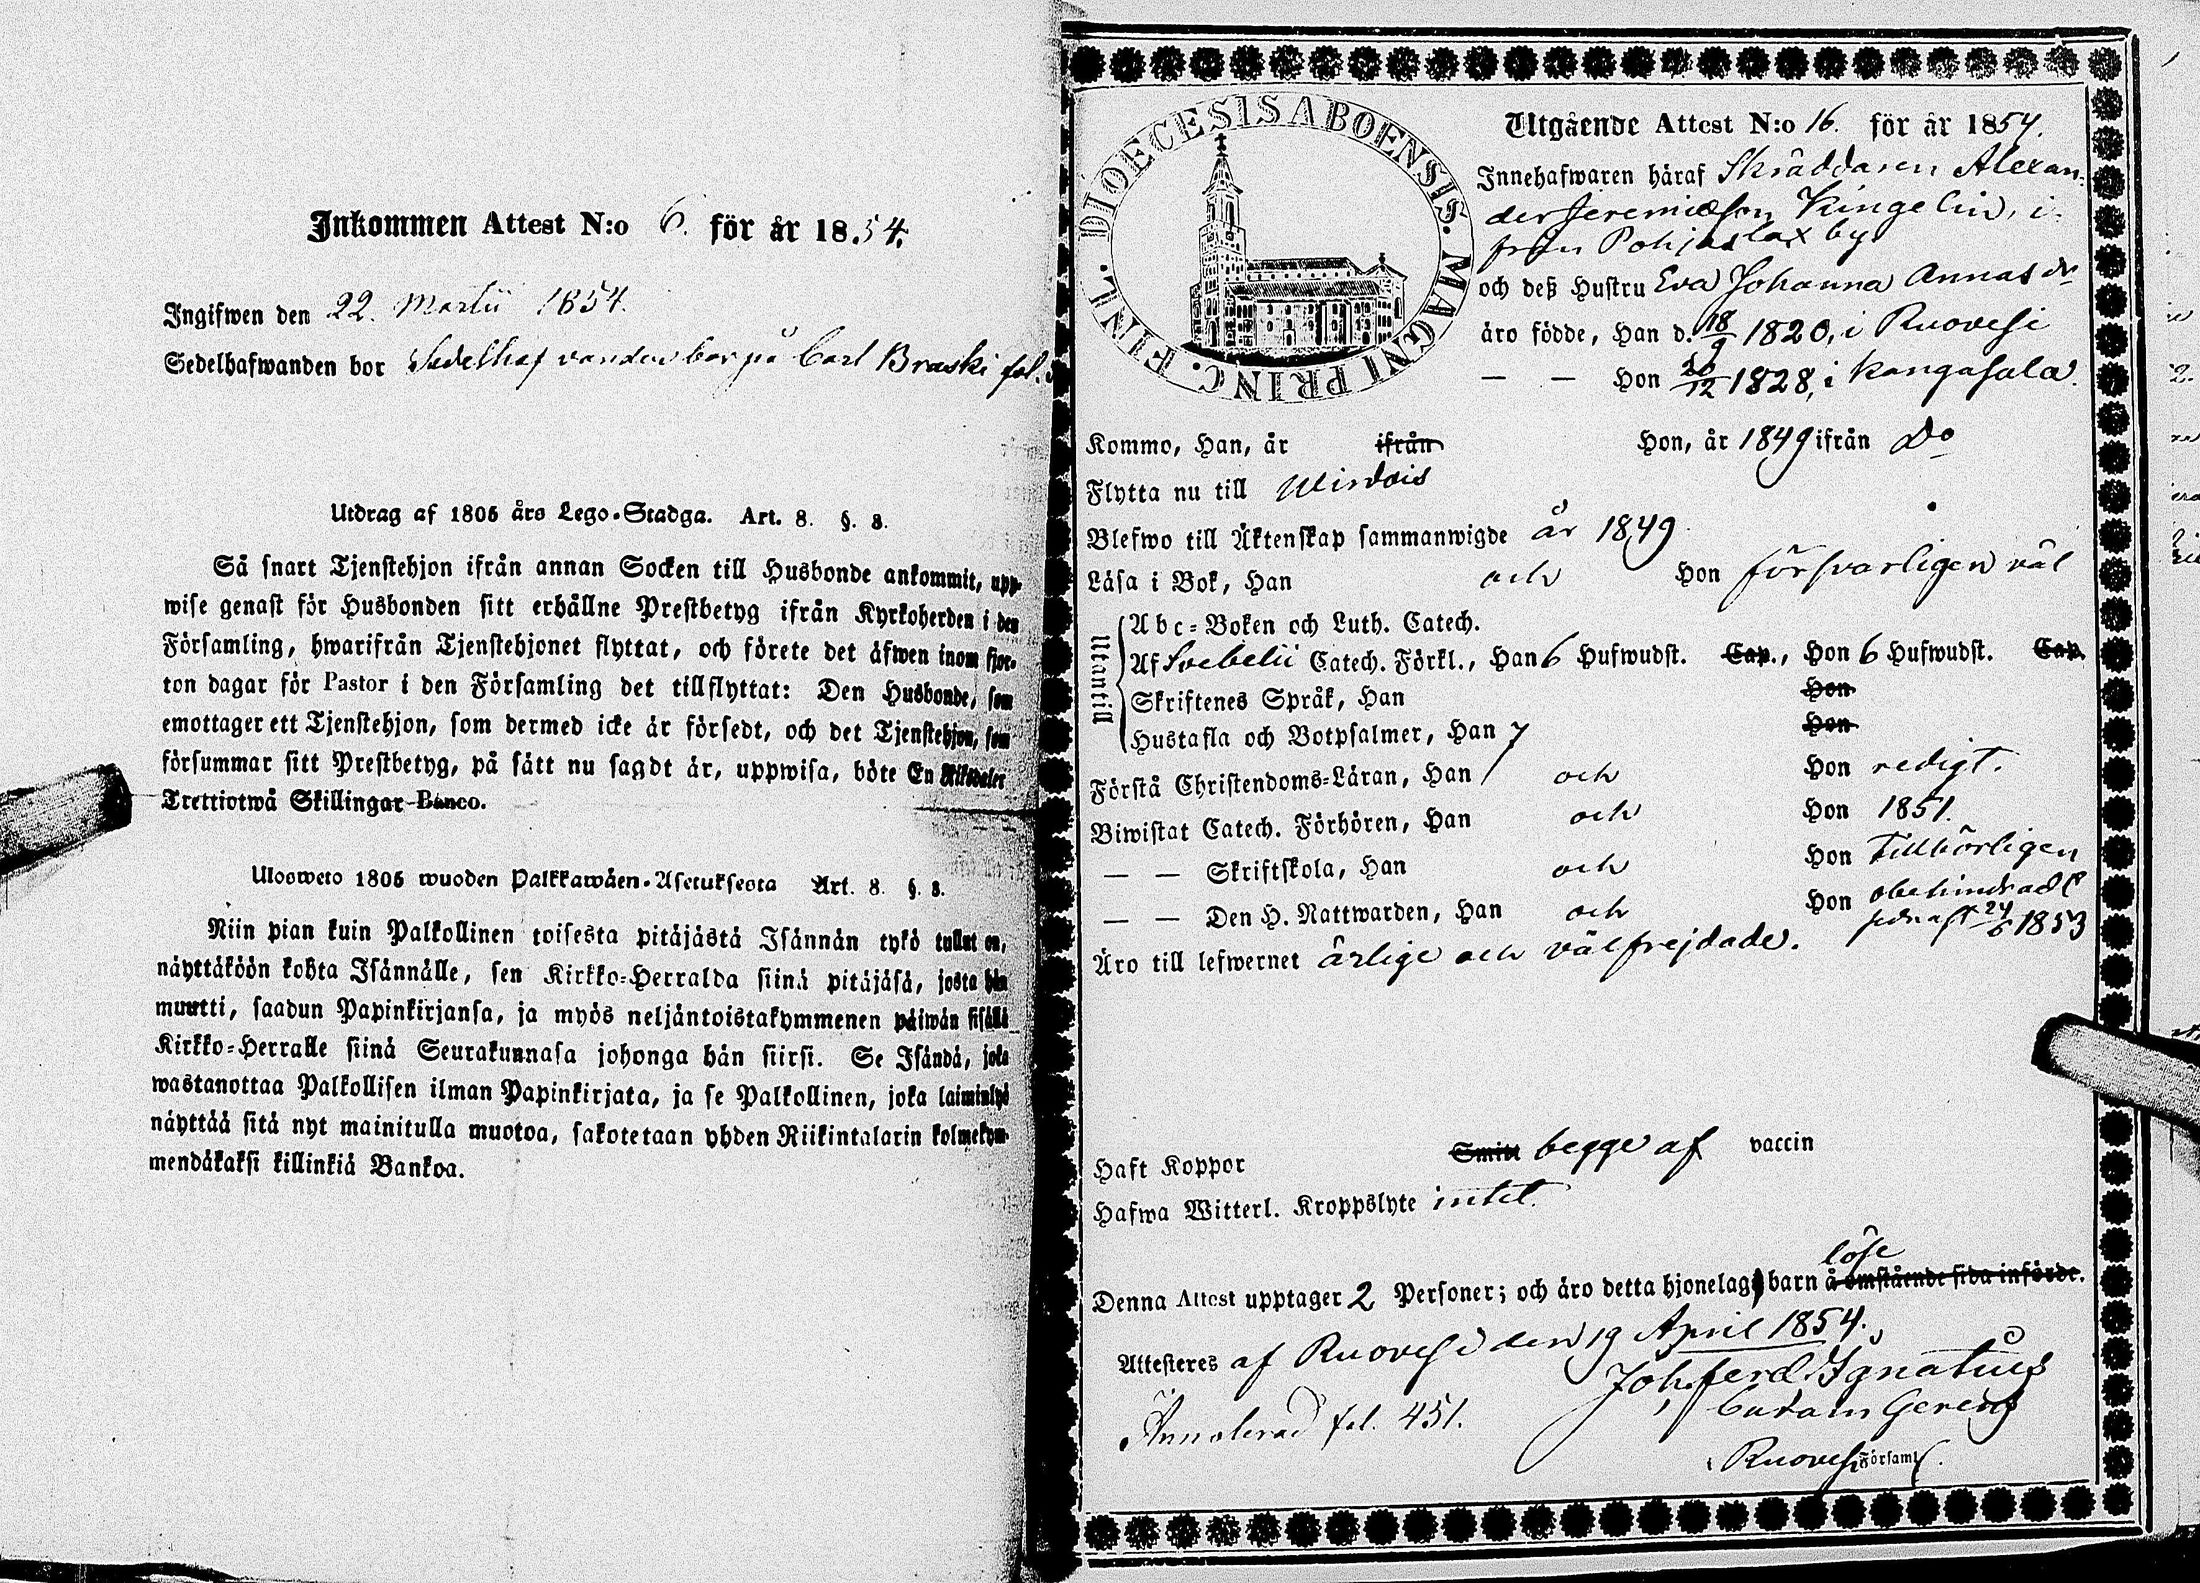 Inkommen Attest N:o 6. för år 18.54.
Ingifwen den 22. Martii 1854.
Sedelhafwanden bor Sedelhafvanden bor på Carl Braski fol.
Utdrag af 1805 års Lego-Stadga. Art. 8. §. 3.
Så snart Tjenstehjon ifrån annan Socken till Husbonde ankommit, upp-
wise genast för Husbonden sitt erhållne Prestbetyg ifrån Kyrkoherden i den
Församling, hwarifrån Tjenstehjonet flyttat, och förete det äfwen inom fjor-
ton dagar för Pastor i den Församling det tillflyttat: Den Husbonde, som
emottager ett Tjenstehjon, som dermed icke är försedt, och det Tjenstehjon, som
försummar sitt Prestbetyg, på sätt nu sagdt är, uppwisa, böte En Riksdaler
Trettiotwå Skillingar Banco.
Ulosweto 1805 wuoden Palkkawäen-Asetuksesta Art. 8. §. 3.
Niin pian kuin Palkollinen toisesta pitäjästä Isännän tykö tullut on,
näyttäköön kohta Isännälle, sen Kirkko-Herralda siinä pitäjäsä, josta hän
muutti, saadun Papinkirjansa, ja myös neljäntoistakymmenen päiwän sisällä
Kirkko-Herralle siinä Seurakunnasa johonga hän siirsi. Se Isändä, joka
wastanottaa Palkollisen ilman Papinkirjata, ja se Palkollinen, joka laiminlyö
näyttää sitä nyt mainitulla muotoa, sakotetaan yhden Riikintalarin kolmekym-
mendäkaksi killinkiä Bankoa.
DIOECESIS ABOENSIS. MAGNI PRINC. FINL.
Utgående Attest N:o 16. för år 1854.
Innehafwaren häraf Skräddaren Alexan-
der Jeremiæson Kingelin, i-
från Pohjaslax by
och deß Hustru Eva Johanna Annasdr
äro födde, Han d. 18/9 1820, i Ruovesi
— — Hon 20/12 1828, i Kangasala.
Kommo, Han, år ifrån Hon, år 1849 ifrån Do
Flytta nu till Wirdois
Blefwo till Äktenskap sammanwigde år 1849
Läsa i Bok, Han och Hon försvarligen väl
Utantill
Abc-Boken och Luth. Catech.
Af Svebelii Catech. Förkl., Han 6 Hufwudst. Cap., Hon 6 Hufwudst. Cap.
Skriftenes Språk, Han Hon
Hustafla och Botpsalmer, Han 7 Hon
Förstå Christendoms-Läran, Han och Hon redigt.
Biwistat Catech. Förhören, Han och Hon 1851.
— — Skriftskola, Han och Hon Tillbörligen
— — Den H. Nattwarden, Han och Hon obehindradt
sednast 24/6 1853
Äro till lefwernet ärlige och välfrejdade.
Haft Koppor Smitt begge af vaccin
Hafwa Witterl. Kroppslyte intet.
löse
Denna Attest upptager 2 Personer; och äro detta hjonelags barn å omstående sida införde.
Attesteres af Ruovesi den 19 April 1854.
Joh. Ferd. Ignatius
Annoterad fol. 451.
Curam Gerens
i Ruovesi Församl.